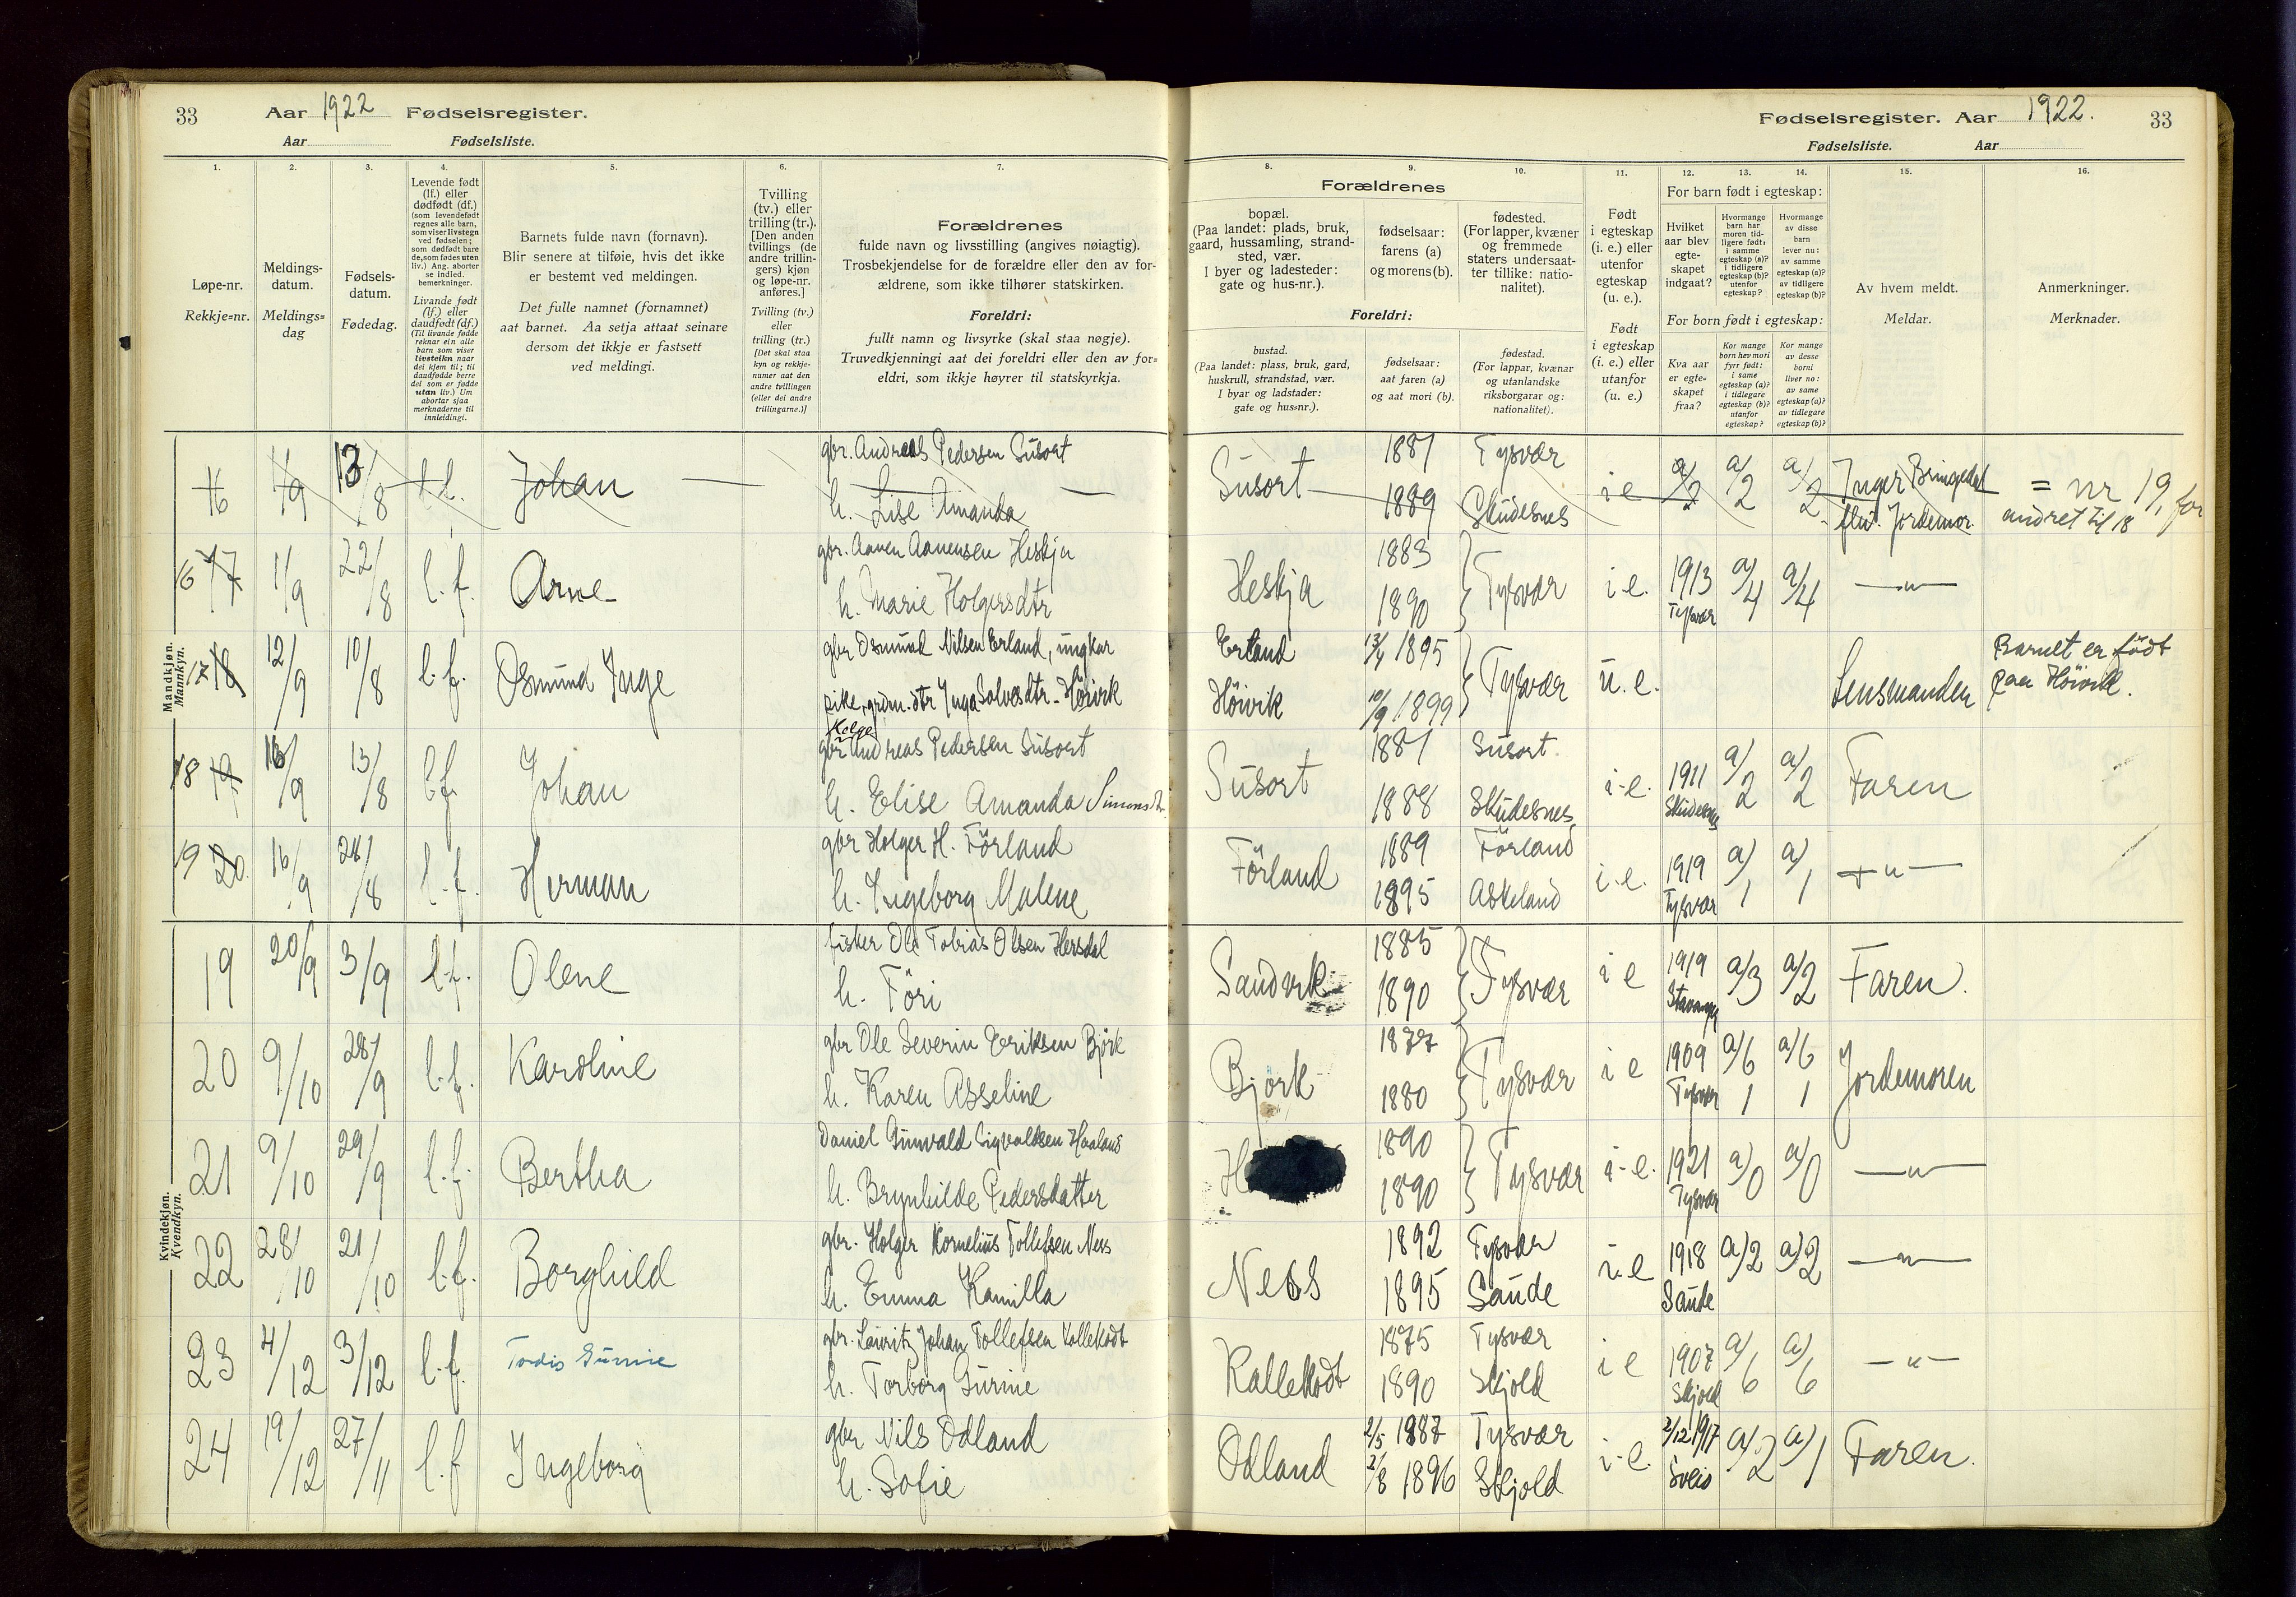 33 Aar 1922 Fødselsregister.
Aar Fødselsliste.
Fødselsregister. Aar 1922. 33
Fødselsliste. Aar
1. 2. 3. 4. 5. 6. 7.
Løpe-nr.
Rekkje=nr.
Meldings-
datum.
Meldings=
dag
Fødsels-
datum.
Fødedag.
Levende født
(lf.) eller
dødfødt (df.)
(som levendefødt
regnes alle barn,
som viser livstegn
ved fødselen;
som dødfødt bare
de, som fødes uten
liv.) Ang. aborter
se indled.
bemerkninger.
Livande født
(lf.) eller
daudfødt (df.)
(Til livande fødde
reknar ein alle
barn som viser
livsteikn naar
dei kjem til; til
daudfødde berre
dei som er fødde
utan liv.) Um
abortar sjaa
merknaderne til
innleidingi.
Barnets fulde navn (fornavn).
Blir senere at tilføie, hvis det ikke
er bestemt ved meldingen.
Det fulle namnet (fornamnet)
aat barnet. Aa setja attaat seinare
dersom det ikkje er fastsett
ved meldingi.
Tvilling
(tv.) eller
trilling (tr.).
[Den anden
tvillings (de
andre trillin-
gers) kjøn
og løpe-nr.
anføres.]
Tvilling (tv.)
eller
trilling (tr.)
[Det skal staa
kyn og rekkje-
numer aat den
andre tvillingen
(eller dei andre
trillingarne.)]
Forældrenes
fulde navn og livsstilling (angives nøiagtig).
Trosbekjendelse for de forældre eller den av for-
ældrene, som ikke tilhører statskirken.
Foreldri:
fullt namn og livsyrke (skal staa nøgje).
Truvedkjenningi aat dei foreldri eller den av for=
eldri, som ikkje høyrer til statskyrkja.
8. 9. 10. 11. 12. 13. 14. 15. 16.
Forældrenes
bopæl.
(Paa landet: plads, bruk,
gaard, hussamling, strand-
sted, vær.
I byer og ladesteder:
gate og hus-nr.).
fødselsaar:
farens (a)
og morens (b).
fødested.
(For lapper, kvæner
og fremmede
staters undersaat-
ter tillike: natio-
nalitet).
Foreldri:
bustad.
(Paa landet: plass, bruk, gard,
huskrull, strandstad, vær.
I byar og ladstader:
gate og hus=nr.).
fødselsaar:
aat faren (a)
og aat mori (b).
fødestad.
(For lappar, kvænar
og utanlandske
riksborgarar og:
nationalitet).
Født
i egteskap
(i. e.) eller
utenfor
egteskap
(u. e.).
Født
i egteskap
(i. e.) eller
utanfor
(u. e.)
For barn født i egteskap:
Hvilket
aar blev
egte-
skapet
indgaat?
Hvormange
barn har
moren tid-
ligere født:
i samme
egteskap (a)?
i tidligere
egteskap (b)?
utenfor
egteskap?
Hvormange
av disse
barn
lever nu:
av samme
egteskap (a)?
av tidligere
egteskap (b)?
For born født i egteskap:
Kva aar
er egte=
skapet
fraa?
Kor mange
born hev mori
fyrr født:
i same
egteskap (a)?
i tidlegare
egteskap (b)?
utanfor
egteskap?
Kor mange
av desse
borni
liver no:
av same
egteskap (a)?
av tidlegare
egteskap (b)?
Av hvem meldt.
Meldar.
Anmerkninger.
Merknader.
Mandkjøn.
Mannkyn.
16 1/9 13/8 l.f. Johan gbr. Andreas Pedersen Süsort Süsort 1887 Tysvær i e a/2 a/2 a/2 Inger Bringedal = nr 19, for
h. Lise Amanda 1889 Sküdesnes Jordemor andret til 18
16 17 1/9 22/8 l.f. Arne gbr. Aanen Aanensen Heskja Heskja 1883 Tysvær i e. 1913 a/4 a/4 —"—
h. Marie Holgersdtr 1890 Tysvær
17 18 12/9 10/8 l.f. Osmünd Inge gbr Osmünd Nilsen Erland, ungkar Erland 13/4 1895 Tysvær ü. e. Lensmanden Barnet er født
pike, grdm. dtr Inga Solvesdtr - Höivik Höivik 10/9 1899 paa Höivik.
18 19 16/9 13/8 l.f. Johan Helge
gbr Andreas Pedersen Süsort Süsort 1887 Süsort. i.e. 1911 a/2 a/2 Faren
h. Elise Amanda Simonsdtr. 1888 Sküdesnes
19 20 16/9 24/8 l.f. Herman gbr Holger H. Förland Förland 1889 Förland i.e. 1919 a/1 a/1 —"—
h. Ingeborg Malene 1895 Askeland Tysvær
Kvindekjøn.
Kvendkyn.
19 20/9 3/9 l.f. Olene fisker Ole Tobias Olsen Hersdal Sandvik 1885 Tysvær i e 1919 a/3 a/2 Faren.
h. Töri 1890 Stavanger
20 9/10 28/9 l.f. Karoline gbr Ole Severin Eriksen Björk Björk 1877 Tysvær i e 1909 a/6 a/6 Jordemoren
h. Karen Asseline 1880 Tysvær 1 1
21 9/10 29/9 l.f. Bertha Daniel Günvald Sigvaldsen Haaland 1890 Tysvær i-e. 1921 a/0 a/0 —"—
h. Brynhilde Pedersdatter 1890 Tysvær
22 28/10 21/10 l.f. Borghild gbr. Holger Kornelius Tollefsen Ness Ness 1892 Tysvær i.e 1918 a/2 a/2 —"—
h. Emma Kamilla 1895 Saude Saude
23 4/12 3/12 l.f. Todis Gurine gbr. Lauritz Johan Tollefsen Kallekodt Kallekodt 1875 Tysvær i e 1907 a/6 a/6 —"—
h. Torborg Gurine 1890 Skjold Skjold
24 19/12 27/11 l.f Ingeborg gbr Nils Odland Odland 2/5 1887 Tysvær i.e. 2/12 1917 a/2 a/1 Faren.
h. Sofie 2/8 1896 Skjold Sveio